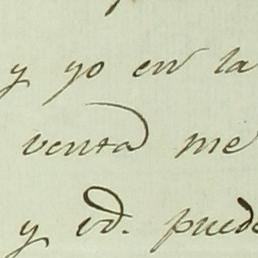 y yo en la
venta me
y vd. puede